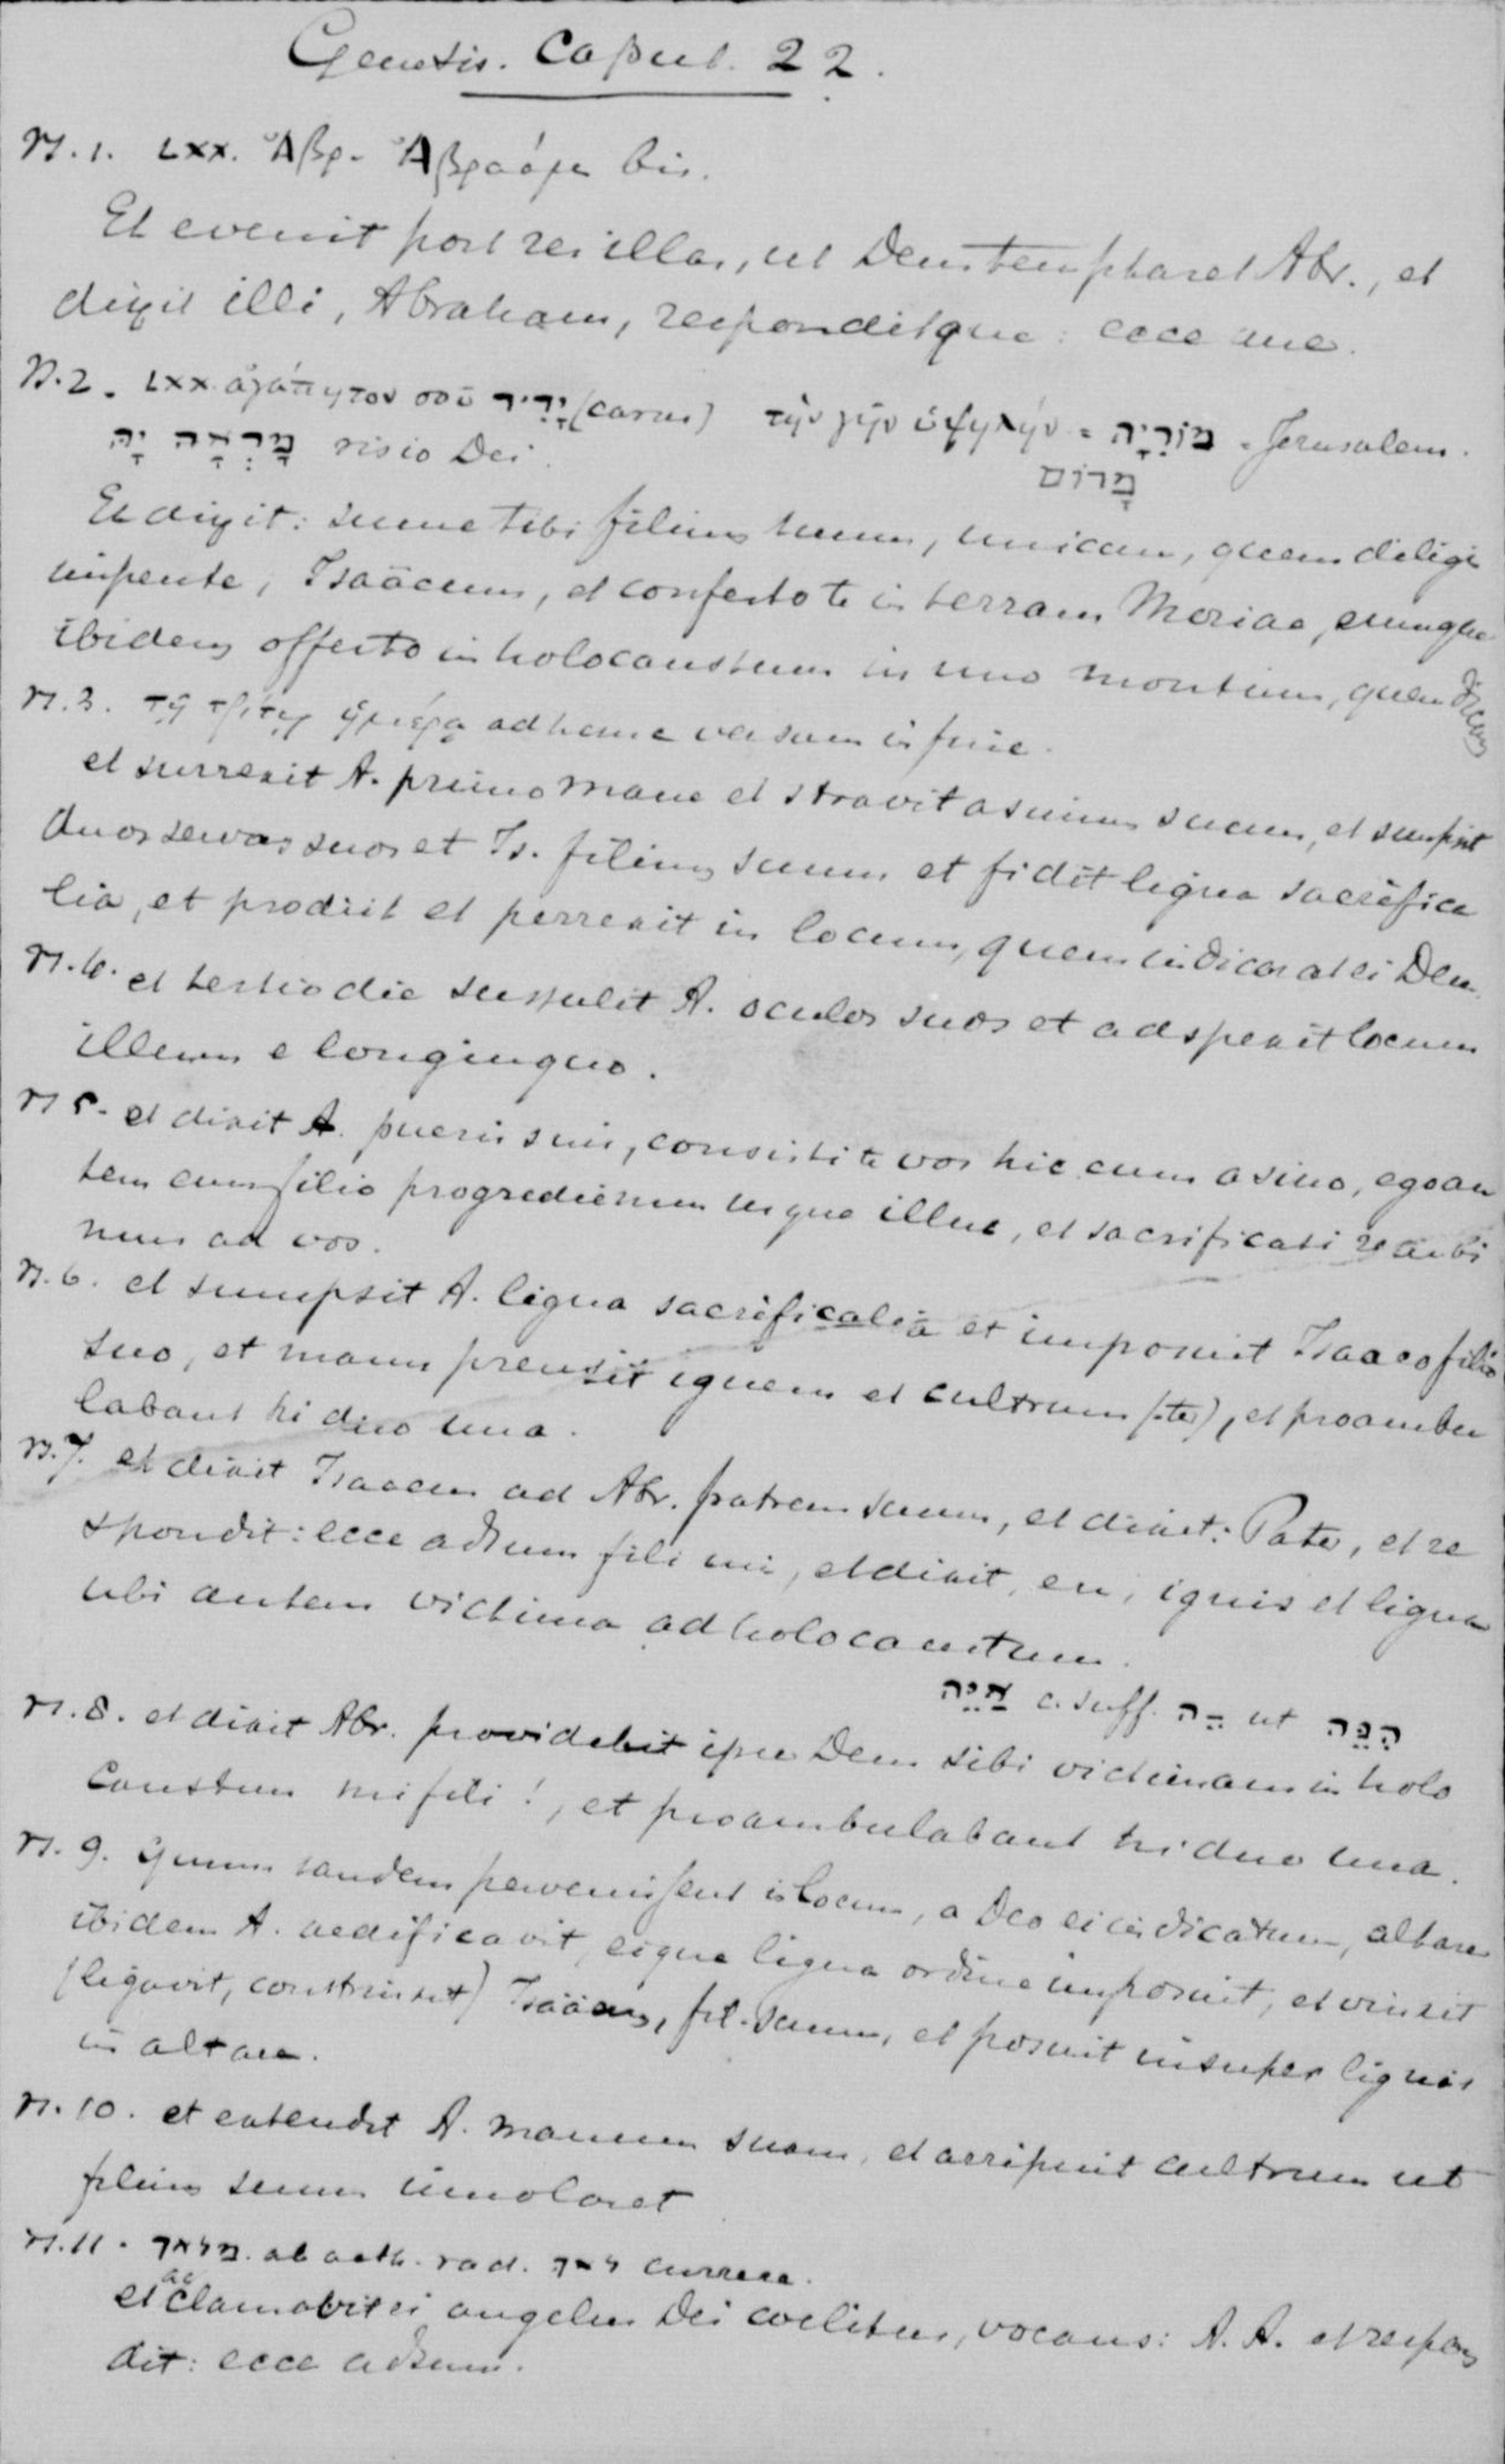 Genesis. Caput. 22.
V. 1. LXX. Ἀβρ. Ἀβραάμ bis.
Et evenit post res illas, ut Deus temptaret Abr., et
dixit illi, Abraham, responditque: ecce me.
V. 2. LXX ἀγάπητον σοῦ יָדִיד (carus) τὴν γῆν ὑψηλήν = מוֹרִיָּה = Jerusalem.
מָרְאָה יָהּ visio Dei. מָרוֹם
Et dixit: sume tibi filium tuum, unicum, quem diligis
impense, Isaäcum, et conferto te in terram Moriae, eumque
ibidem offerto in holocaustum in uno montium, quem dicam
V. 3. τῇ τρίτῃ ἡμέρᾳ ad hunc versum in fine.
et surrexit A. primo mane et stravit asinum suum, et sumpsit
duos servos suos et Is. filium suum et fidit ligna sacrifica
lia, et prodiit et perrexit in locum, quem indicarat ei Deus.
V. 4. et tertio die sustulit A. oculos suos et adspexit locum
illum e longinquo.
V 5. et dixit A. pueris suis, consistite vos hic cum asino, ego au
tem cum filio progrediemur usque illuc, et sacrificati redibi
mus ad vos.
V. 6. et sumpsit A. ligna sacrificalia et imposuit Isaaco filio
suo, et manu prensit ignem et cultrum (ter), et proambu
labant hi duo una.
V. 7. et dixit Isaacus ad Abr. patrem suum, et dixit: Pater, et re
spondit: ecce adsum fili mi, et dixit, en, ignis et ligna
ubi autem victima ad holocaustum.
אַיֵּה c. suff. ־ֵה ut הִנֵּה
V. 8. et dixit Abr. providebit ipse Deus sibi victimam in holo
caustum mi fili!, et proambulabant hi duo una.
V. 9. Quum tandem pervenissent in locum, a Deo ei indicatum, altare
ibidem A. aedificavit, eique ligna ordine imposuit, et vinxit
(ligavit, constrinxit) Isäacum, fil. suum, et posuit insuper lignis
in altare.
V. 10. et extendit A. manum suam, et arripuit cultrum ut
filium suum immolaret
V. 11. מלאך. ab aeth. rad. לאך currere.
et acclamabit ei angelus Dei coelitus, vocans: A. A. et respon
dit: ecce adsum.